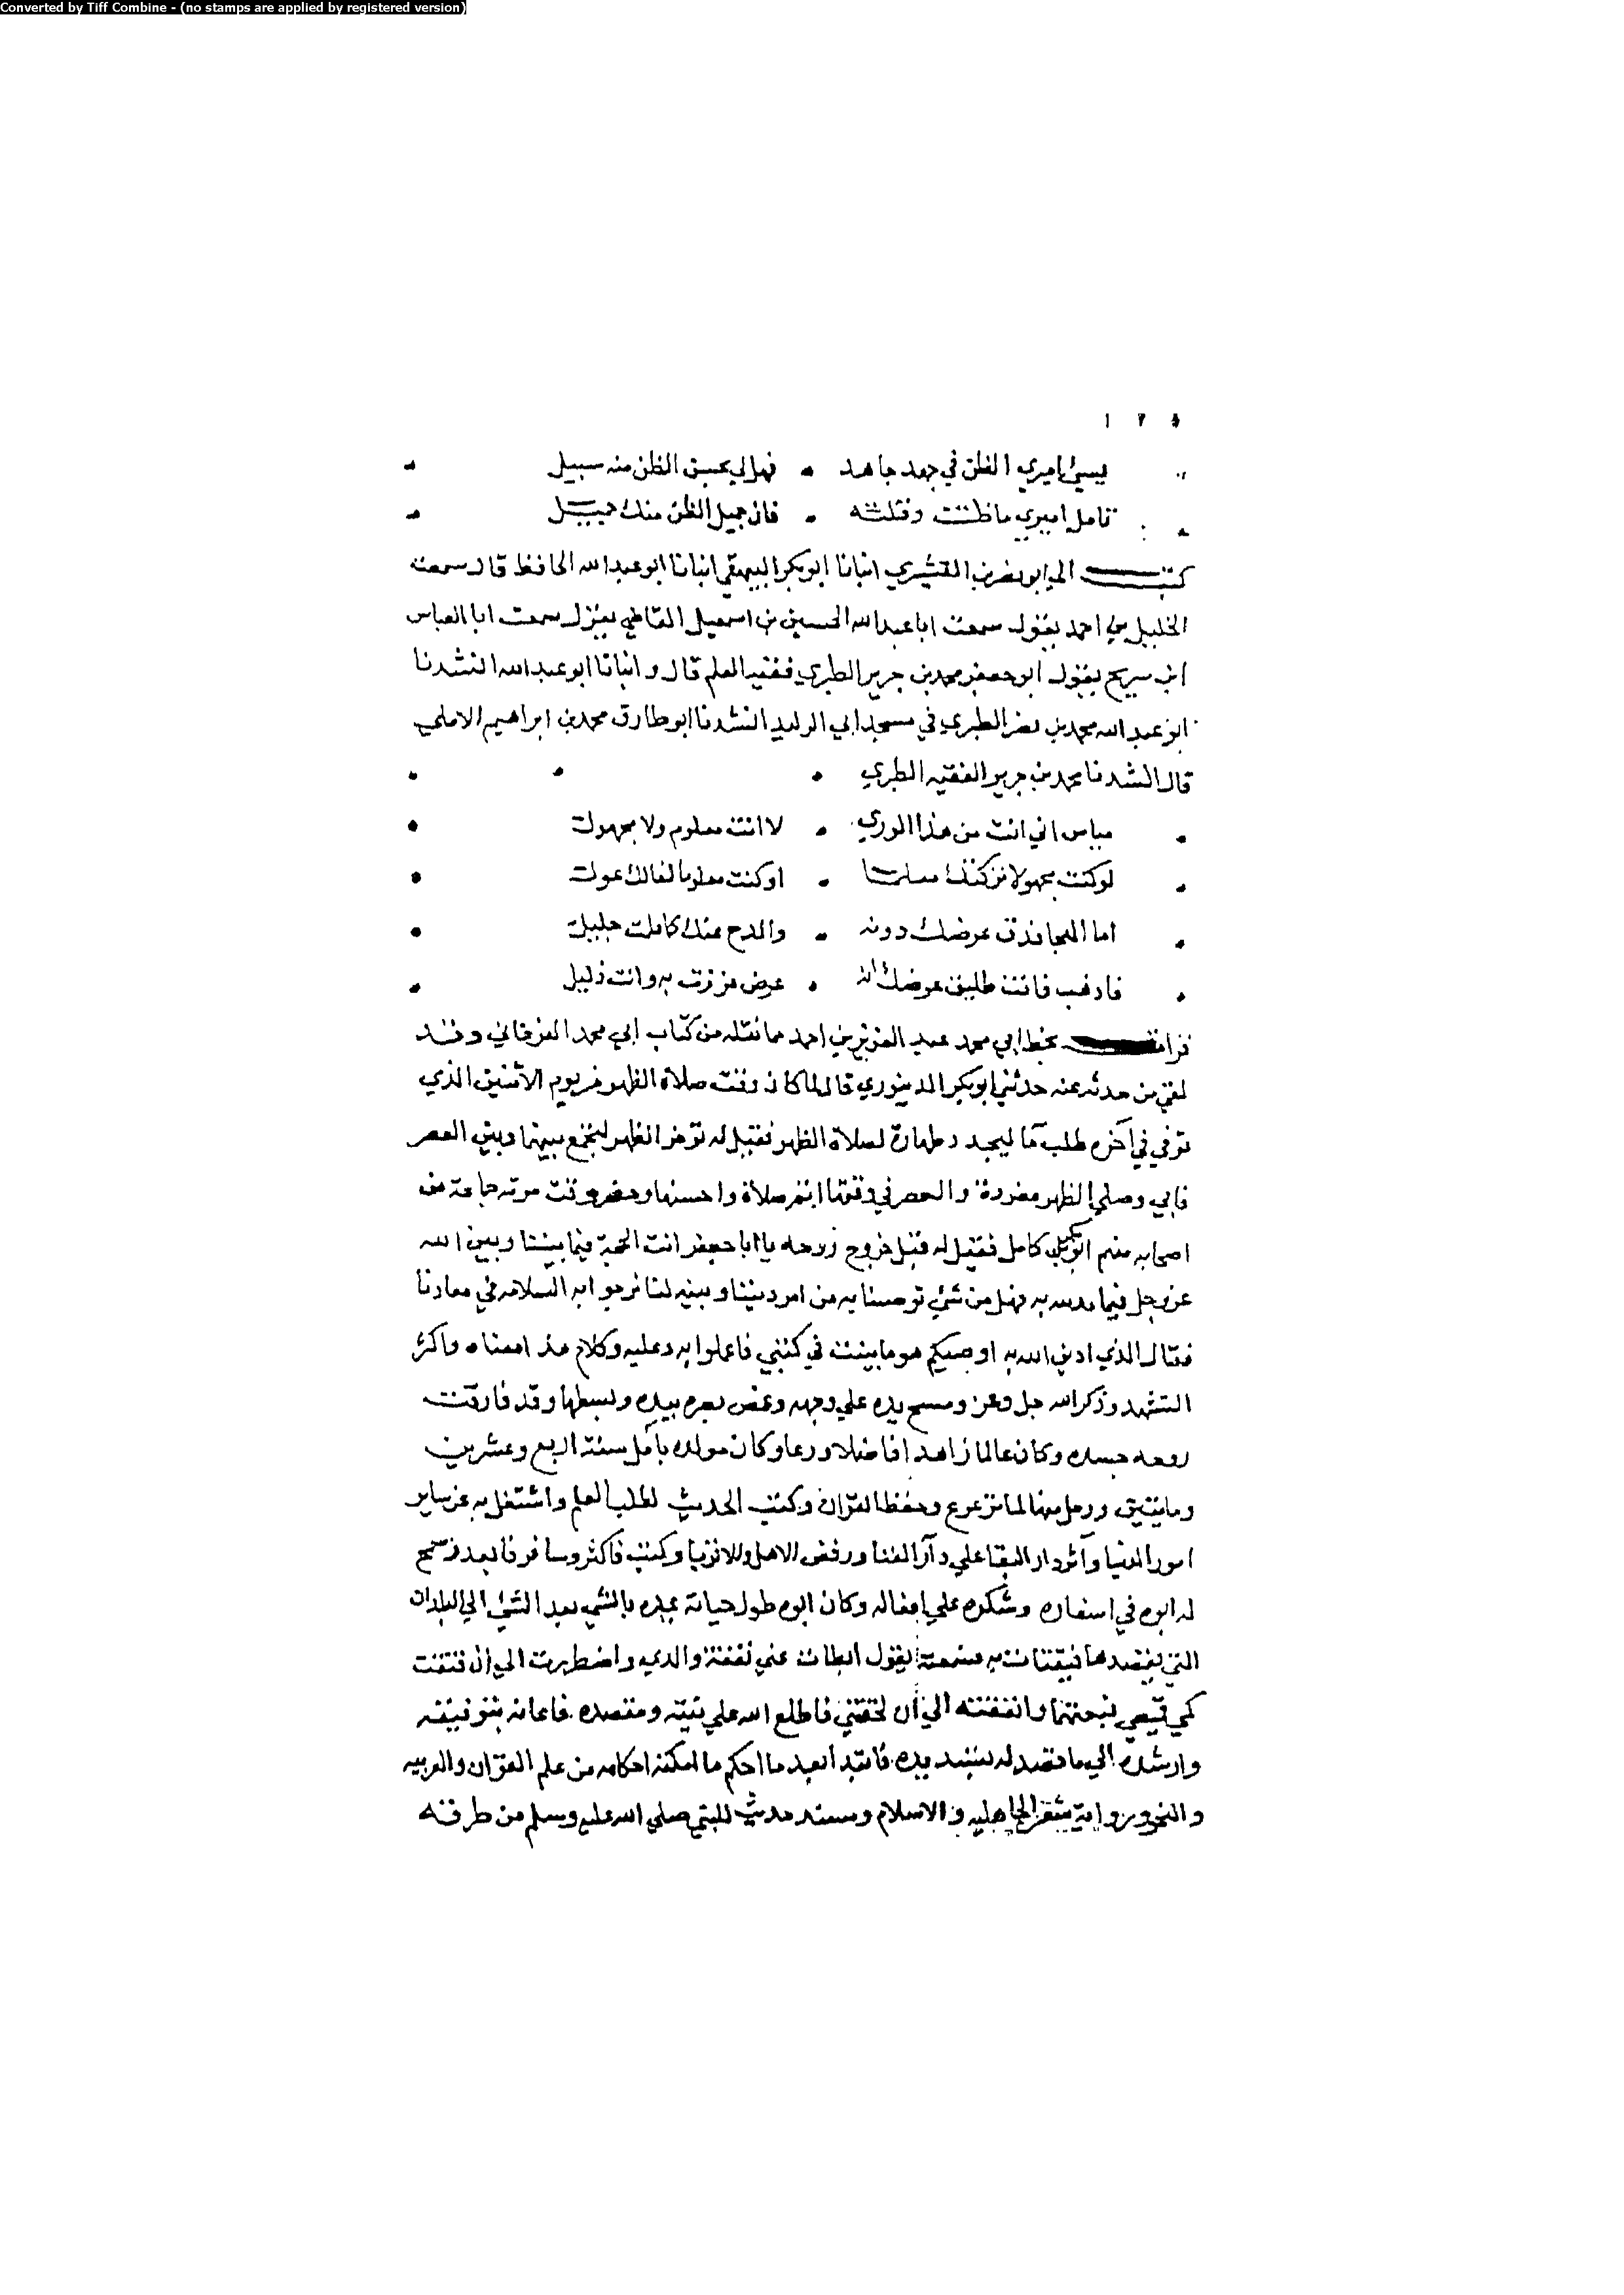 Converted by Tiff Combine - (no stamps are applied by registered version)
١ ٢ ٥
يسيئ اميري الظن في جهد جاهد فهل لي بحسن الظن منه سبيل
تامل اميري ما ظننت وقلته فان جميل الظن منك جميل
كتب الي ابو نصر بن القشيري انبانا ابو بكر البيهقي انبانا ابو عبدالله الحافظ قال سمعت
الخليل بن احمد يقول سمعت ابا عبدالله الحسين بن اسمعيل القاضي يقول سمعت ابا العباس
ابن سريج يقول ابو جعفر محمد بن جرير الطبري فقيه العلم قال وانبانا ابو عبدالله انشدنا
ابو عبد الله محمد بن نصر الطبري في مسجد ابي الوليد انشدنا ابو طارق محمد بن ابراهيم الاملي
قال انشدنا محمد بن جرير الفقيه الطبري
عباس اني انت من هذا الوري لا انت معلوم ولا مجهول
لو كنت مجهولا تركتك معلما او كنت معلوما لغالك غول
اما الهجا فدق عرضك دونه والمدح عنك كما علمت جليل
فاذهب فانت طليق عرضك انه عرض عززت به وانت ذليل
قرات بخط ابي محمد عبد العزيز بن احمد مما نقله من كتاب ابي محمد الفرغاني وقد
لقي من حدثه عنه حدثني ابو بكر الدينوري قال لما كان وقت صلاة الظهر من يوم الاثنين الذي
توفي في آخره طلب مآ ليجدد طهارة لصلاة الظهر فقيل له تؤخر الظهر لتجمع بينها وبين العصر
فابي وصلي الظهر مفردة والعصر في وقتها اتم صلاة واحسنها وحضر وقت موته جماعة من
اصحابه منهم ابو بكر بن كامل فقيل له قبل خروج روحه يا ابا جعفر انت الحجة فيما بيننا وبين الله
عز وجل فيما ندين به فهل من شئ توصينا به من امر ديننا وبينة لنا نرجو ابه السلامه في معادنا
فقال الذي ادين الله به اوصيكم هو ما بينت في كتبي فاعملوا به وعليه وكلام هذا معناه واكثر
التشهد وذكر الله جل وعز ومسح يده علي وجهه وغمض بصره بيده وبسطها وقد فارقت
روحه جسده وكان عالما زاهدا فاضلا ورعا وكان مولده بآمل سنة اربع وعشرين
ومايتين ورحل منها لما ترعرع وحفظ القرآن وكتب الحديث لطلب العلم واشتغل به عن ساير
امور الدنيا وآثر دار البقا علي دار الفنا ورفض الاهل والاقربا وكتب فاكثر وسافر فابعد فسمح
له ابوه في اسفاره وشكره علي افعاله وكان ابوه طول حياته يمده بالشئ بعد الشئ الي البلدان
التي يقصدها فيقتات به فسمعته يقول ابطات عني نفقة والدي واضطررت الي ان فتقت
كمي قميصي فبعتهما وانفقته الي ان لحقتني فاطلع الله علي نيته ومقصده فاعانه بتوفيقه
وارشده الي ما قصد له بتسديده فابتدا بعد ما احكم ما امكنه احكامه من علم القرآن والعربيه
والنحو ورواية شعر الجاهليه والاسلام ومسند حديث النبي صلي الله عليه وسلم من طرقه